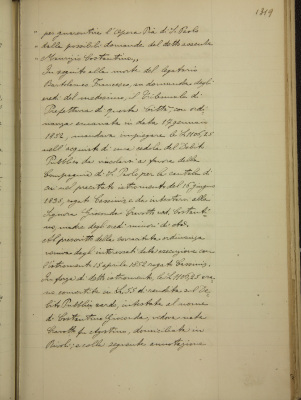 1819
per guarentire l'Opera Pia di S. Paolo
dalle possibili domande del detto assente
Maurizio Costantino,,
In seguito alla morte del Segretario
Bertolonio Francesco, su domanda degli
eredi del medesimo, il Tribunale di
Prefettura di questa Città con ordi-
nanza emanata in data 19 gennaio
1852, mandava impiegare le L. 1105,25
nell'acquisto di una cedola del Debito
Pubblico da vincolarsi a favore della
Compagnia di S. Paolo per la cautela di
cui nel precitato instromento del 15 Giugno
1835, rogato Cossini, e da intestare alla
Signora Gioconda Cavotti ved. Costanti-
no, madre degli eredi minori di età.
Al prescritto della succitata ordinanza
venne dagli interessati data esecuzione con
l'istromento 15 aprile 1852 rogato Cossini.
In forza di detto istromento, le L. 1105,25 ven-
nero convertite in L. 55 di rendita sul De-
bito Pubblico sardo, intestate al nome
di Costantino Gioconda, vedova nata
Cavotti fu Agostino, domiciliata in
colla seguente annotazione